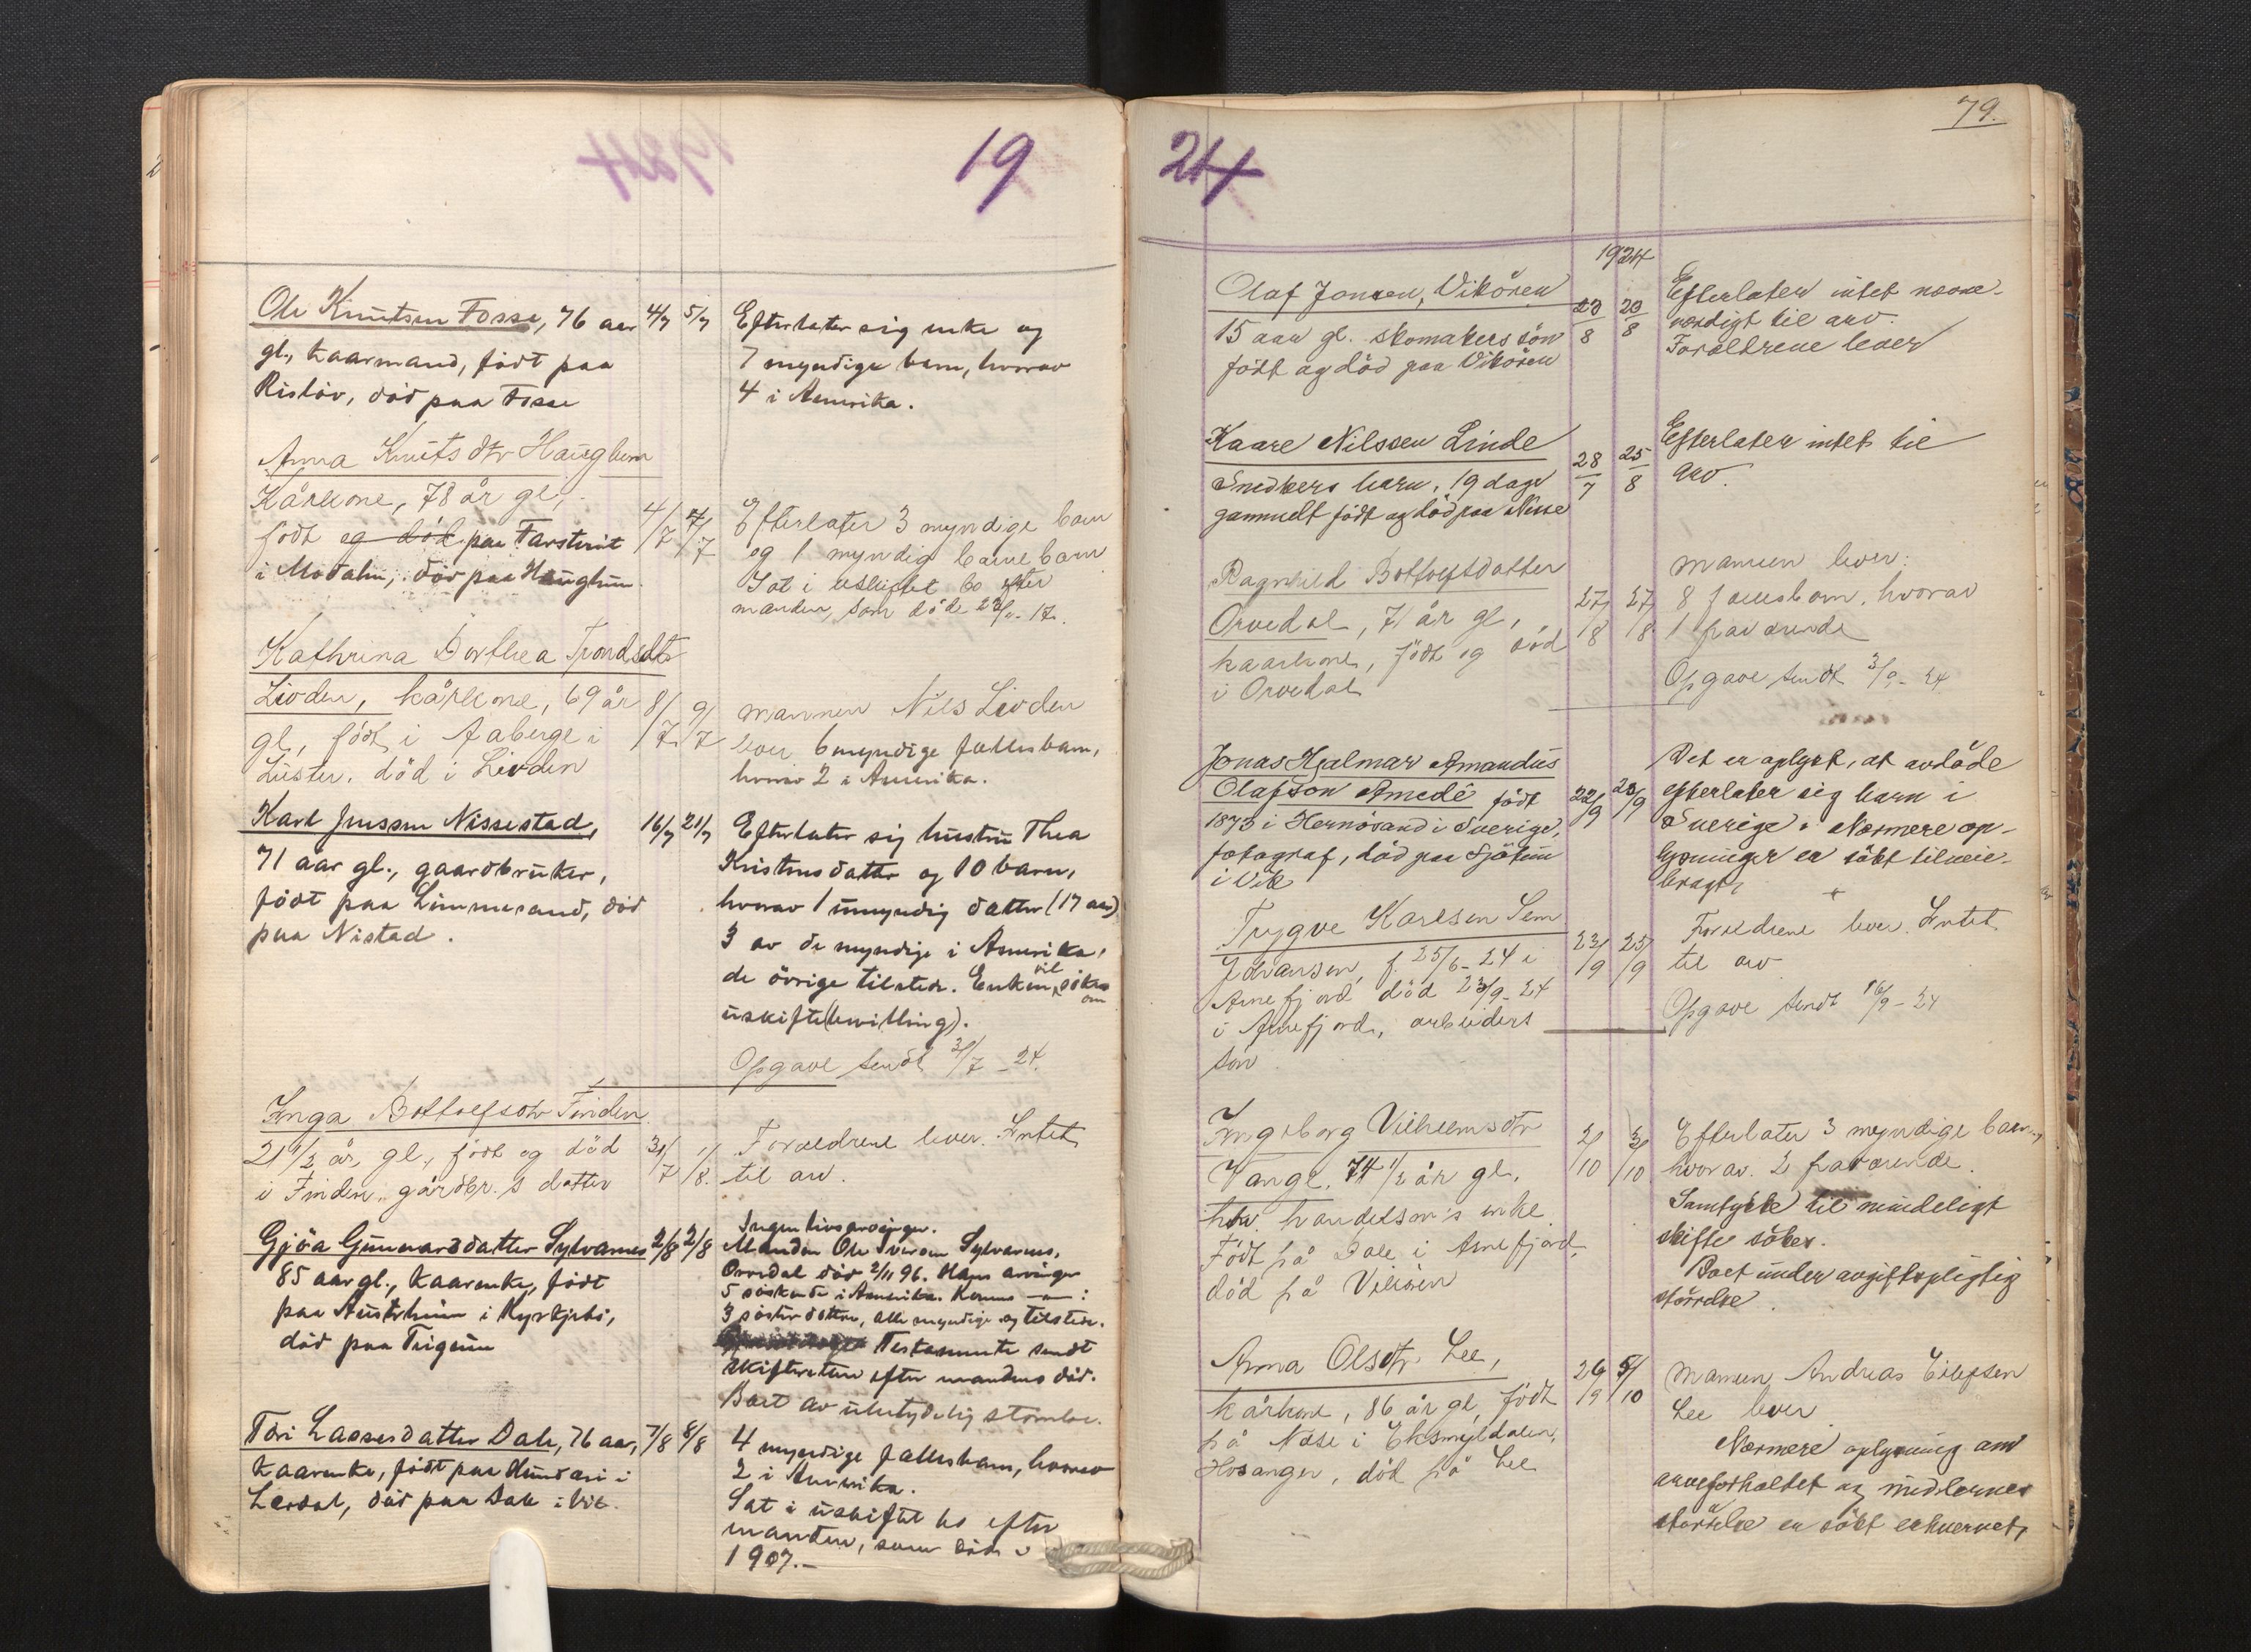 19
Ole Knutsen Fosse, 76 aar 4/7 5/7
gl., kaarmand, født paa
Risløv, død paa Fosse
Efterlater sig enke og
7 myndige barn, hvorav
4 i Amerika.
Anna Knutsdtr Hauglum
Kårkone, 78 år gl., 4/7 4/7
født og død paa Farstveit
i Modalen, død paa Hauglum.
Efterlater 3 myndige barn
og 1 myndig barnebarn
Sat i uskiftet bo efter
manden, som døde
Kathrina Dorthea Trondsdtr
Livden, kårkone, 69 år 8/7 9/7
gl., født i Aaberge i
Luster, død i Livden
mannen Nils Livden
lever 6 myndige fællesbarn,
hvorav 2 i Amerika.
Karl Jensen Nissestad, 16/7 21/7
71 aar gl., gaardbruker,
født paa Limmesand, død
paa Nistad.
Efterlater sig hustru Thea
Kristensdatter og 10 barn,
hvorav 1 umyndig datter (17 aar)
3 av de myndige i Amerika,
de øvrige tilstede. Enken vil søke
om
uskifte(bevilling).
Opgave sendt 31/7 - 24.
Inga Bottolfsdtr Finden
21 1/2 år gl., født og død 31/7 1/8.
i Finden, gårdbr.s datter
Foreldrene lever. Intet
til arv.
Gjøa Gunnarsdatter Sylvarnes 2/8 2/8
85 aar gl., kaarenke, født
paa Austrheim i Kyrkjebø,
død paa Teigen
Ingen livsarvinger.
Manden Ole Sylvarnes,
Orvedal død 2/11 96. Hans arvinger
5 søskende i Amerika. Hennes — " — :
3 søsterdøttre, alle myndige og tilstede.
Testamente sendt
skifteretten efter mandens død.
Boet av ubetydelig størrelse.
Tori Lassesdatter Dale, 76 aar, 7/8 8/8
kaarenke, født paa Hunderi i
Lærdal, død paa Dale i Vik.
4 myndige fællesbarn, hvorav
2 i Amerika.
Sat i uskiftet bo efter
manden, som døde i
1907.—
79.
24
1924
Olaf Jonsen, Vikøren
15 aar gl. skomakers søn 20/8 20/8
født og død paa Vikøren
Efterlater intet nævne-
værdigt til arv.
Foreldrene lever
Kaare Nilssen Linde
Snedkers barn, 19 dage 28/7 25/8
gammelt født og død paa Nisse
Efterlater intet til
arv.
Ragnhild Bottolfsdatter
Orvedal, 71 år gl., 27/8 27/8.
kaarkone, født og død
i Orvedal
mannen lever.
8 fællesbarn, hvorav
1 fraværende
Opgave sendt 3/9 - 24
Jonas Hjalmar Amandus
Olafson Amedé født 22/9 23/9
1873 i Hernøsand i Sverige,
fotograf, død paa Sjøtun
i Vik
Det er oplyst, at avdøde
efterlater sig barn i
Sverige. Nærmere op-
lysninger er søkt tilveie-
bragt.
Trygve Karlsen Sem
Johansen, f. 25/6 - 24 i 23/9 25/9
Arnefjord, død 23/9 - 24
i Arnefjord, arbeiders
søn
Foreldrene lever. Intet
til arv
Opgave sendt 26/9 - 24
Ingeborg Vilhelmsdtr
Vange, 74 1/2 år gl. 2/10 3/10
fhv. handelsm's enke
Født på Dale i Arnefjord,
død på Vikøren
Efterlater 3 myndige barn,
hvorav 2 fraværende.
Samtykke til mindeligt
skifte søkes.
Boet under avgiftspligtig
størrelse.
Anna Olsdtr Lee,
kårkone, 86 år gl, født 26/9 5/10
på Nese i Eksingedalen,
Hosanger, død på Lee
mannen Andreas Eilefsen
Lee lever.
Nærmere oplysning om
arveforholdet og midlernes
størrelse er søkt erhvervet.